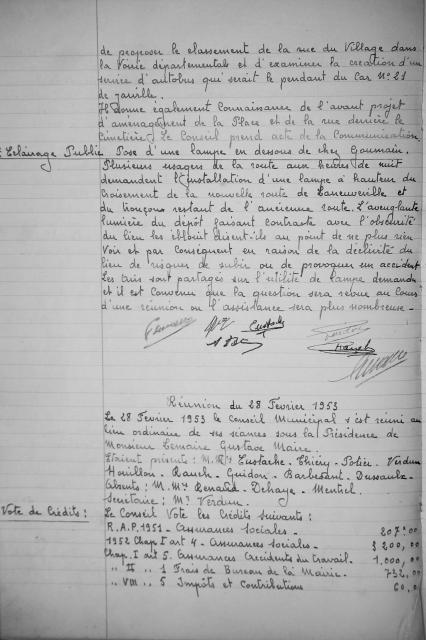 de proposer le classement de la rue du Village dans
la Voirie départementale et d'examiner la création d'un
service d'autobus qui serait le pendant du Car N° 21
de Jarville.
Il donne également connaissance de l'avant projet
d'aménagement de la Place et de la rue derrière le
cimetière. Le Conseil prend acte de la Communication
Eclairage Public Pose d'une lampe en dessous de chez
Plusieurs usagers de la route aux heures de nuit
demandent l'installation d'une lampe à hauteur du
croisement de la nouvelle route de Laneuveville et
du tronçons restant de l'ancienne route. L'aveuglante
lumière du dépôt faisant contraste avec l'obscurité
du lieu les éblouit disent-ils au point de ne plus rien
Voir et par Conséquent en raison de la déclivité du
lieu de risques de subir ou de provoquer un accident
Les avis sont partagés sur l'utilité de lampe demandée
et il est Convenu que la question sera revue au Cours
d'une réunion ou l'assistance sera plus nombreuse -
Eustache
Réunion du 28 Février 1953
Le 28 Fevrier 1953 le Conseil Municipal s'est réuni au
lieu ordinaire de ses séances sous la Présidence de
Monsieur Lemaire Gustave Maire
Etaient présents : M.Mrs Eustache - Thiéry - Potier - Verdun
Houillon - Rauch - Guidon - Barbesant -
Absents : M.Mrs Renauld - Dehaye - Mentrel
Secrétaire : Mr Verdun.
Vote de Crédits : Le Conseil Vote les Crédits Suivants :
R.A.P. 1951 - Assurances sociales - 207,00
1952 Chap I art 4 - Assurances sociales - 5 200,00
Chap. I art 5. Assurances Accidents du travail. 1.000,00
" II " 1 Frais de Bureau de la Mairie. 732,00
" VIII " 5 Impôts et Contributions 60,0